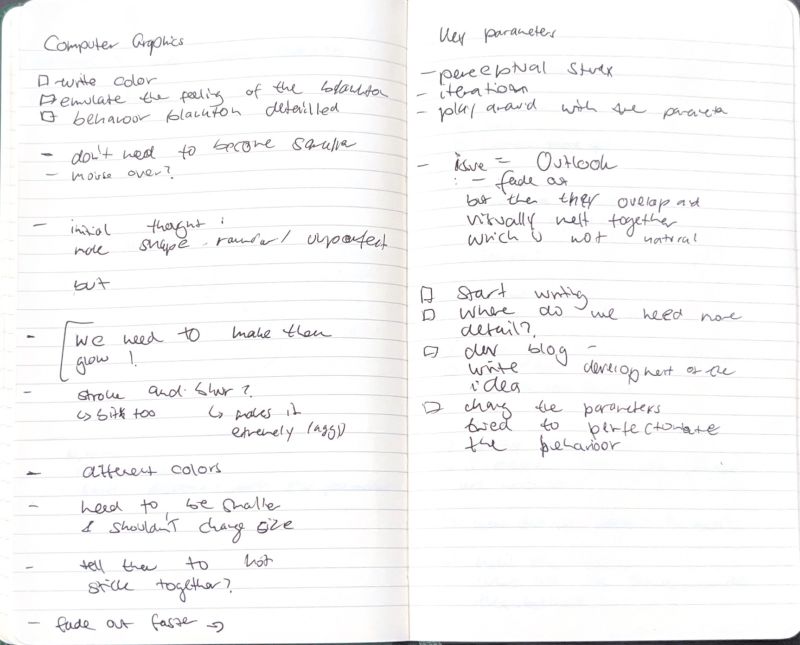 Computer Graphics
□ write color
□ emulate the feeling of the plankton
□ behavoor plankton detailled
- don't need to become
- mouse over?
- initial thought:
shape rounder / unperfect
but
- we need to make them
glow!
- stroke and blur?
↳ bit too ↳ makes it
extremely laggy
- different colors
- need to be smaller
& shouldn't change size
- tell them to not
stick together?
- fade out faster →
Key parameters
- perceptual
- iteration
- play around with the parameter
- issue = Outlook
: - fade out
but then they overlap and
visually melt together
which is not natural
□ start writing
□ where do we need more
detail?
□ dev blog -
write development of the
idea
□ chang the parameters
tried to perfectionate
the behavioor